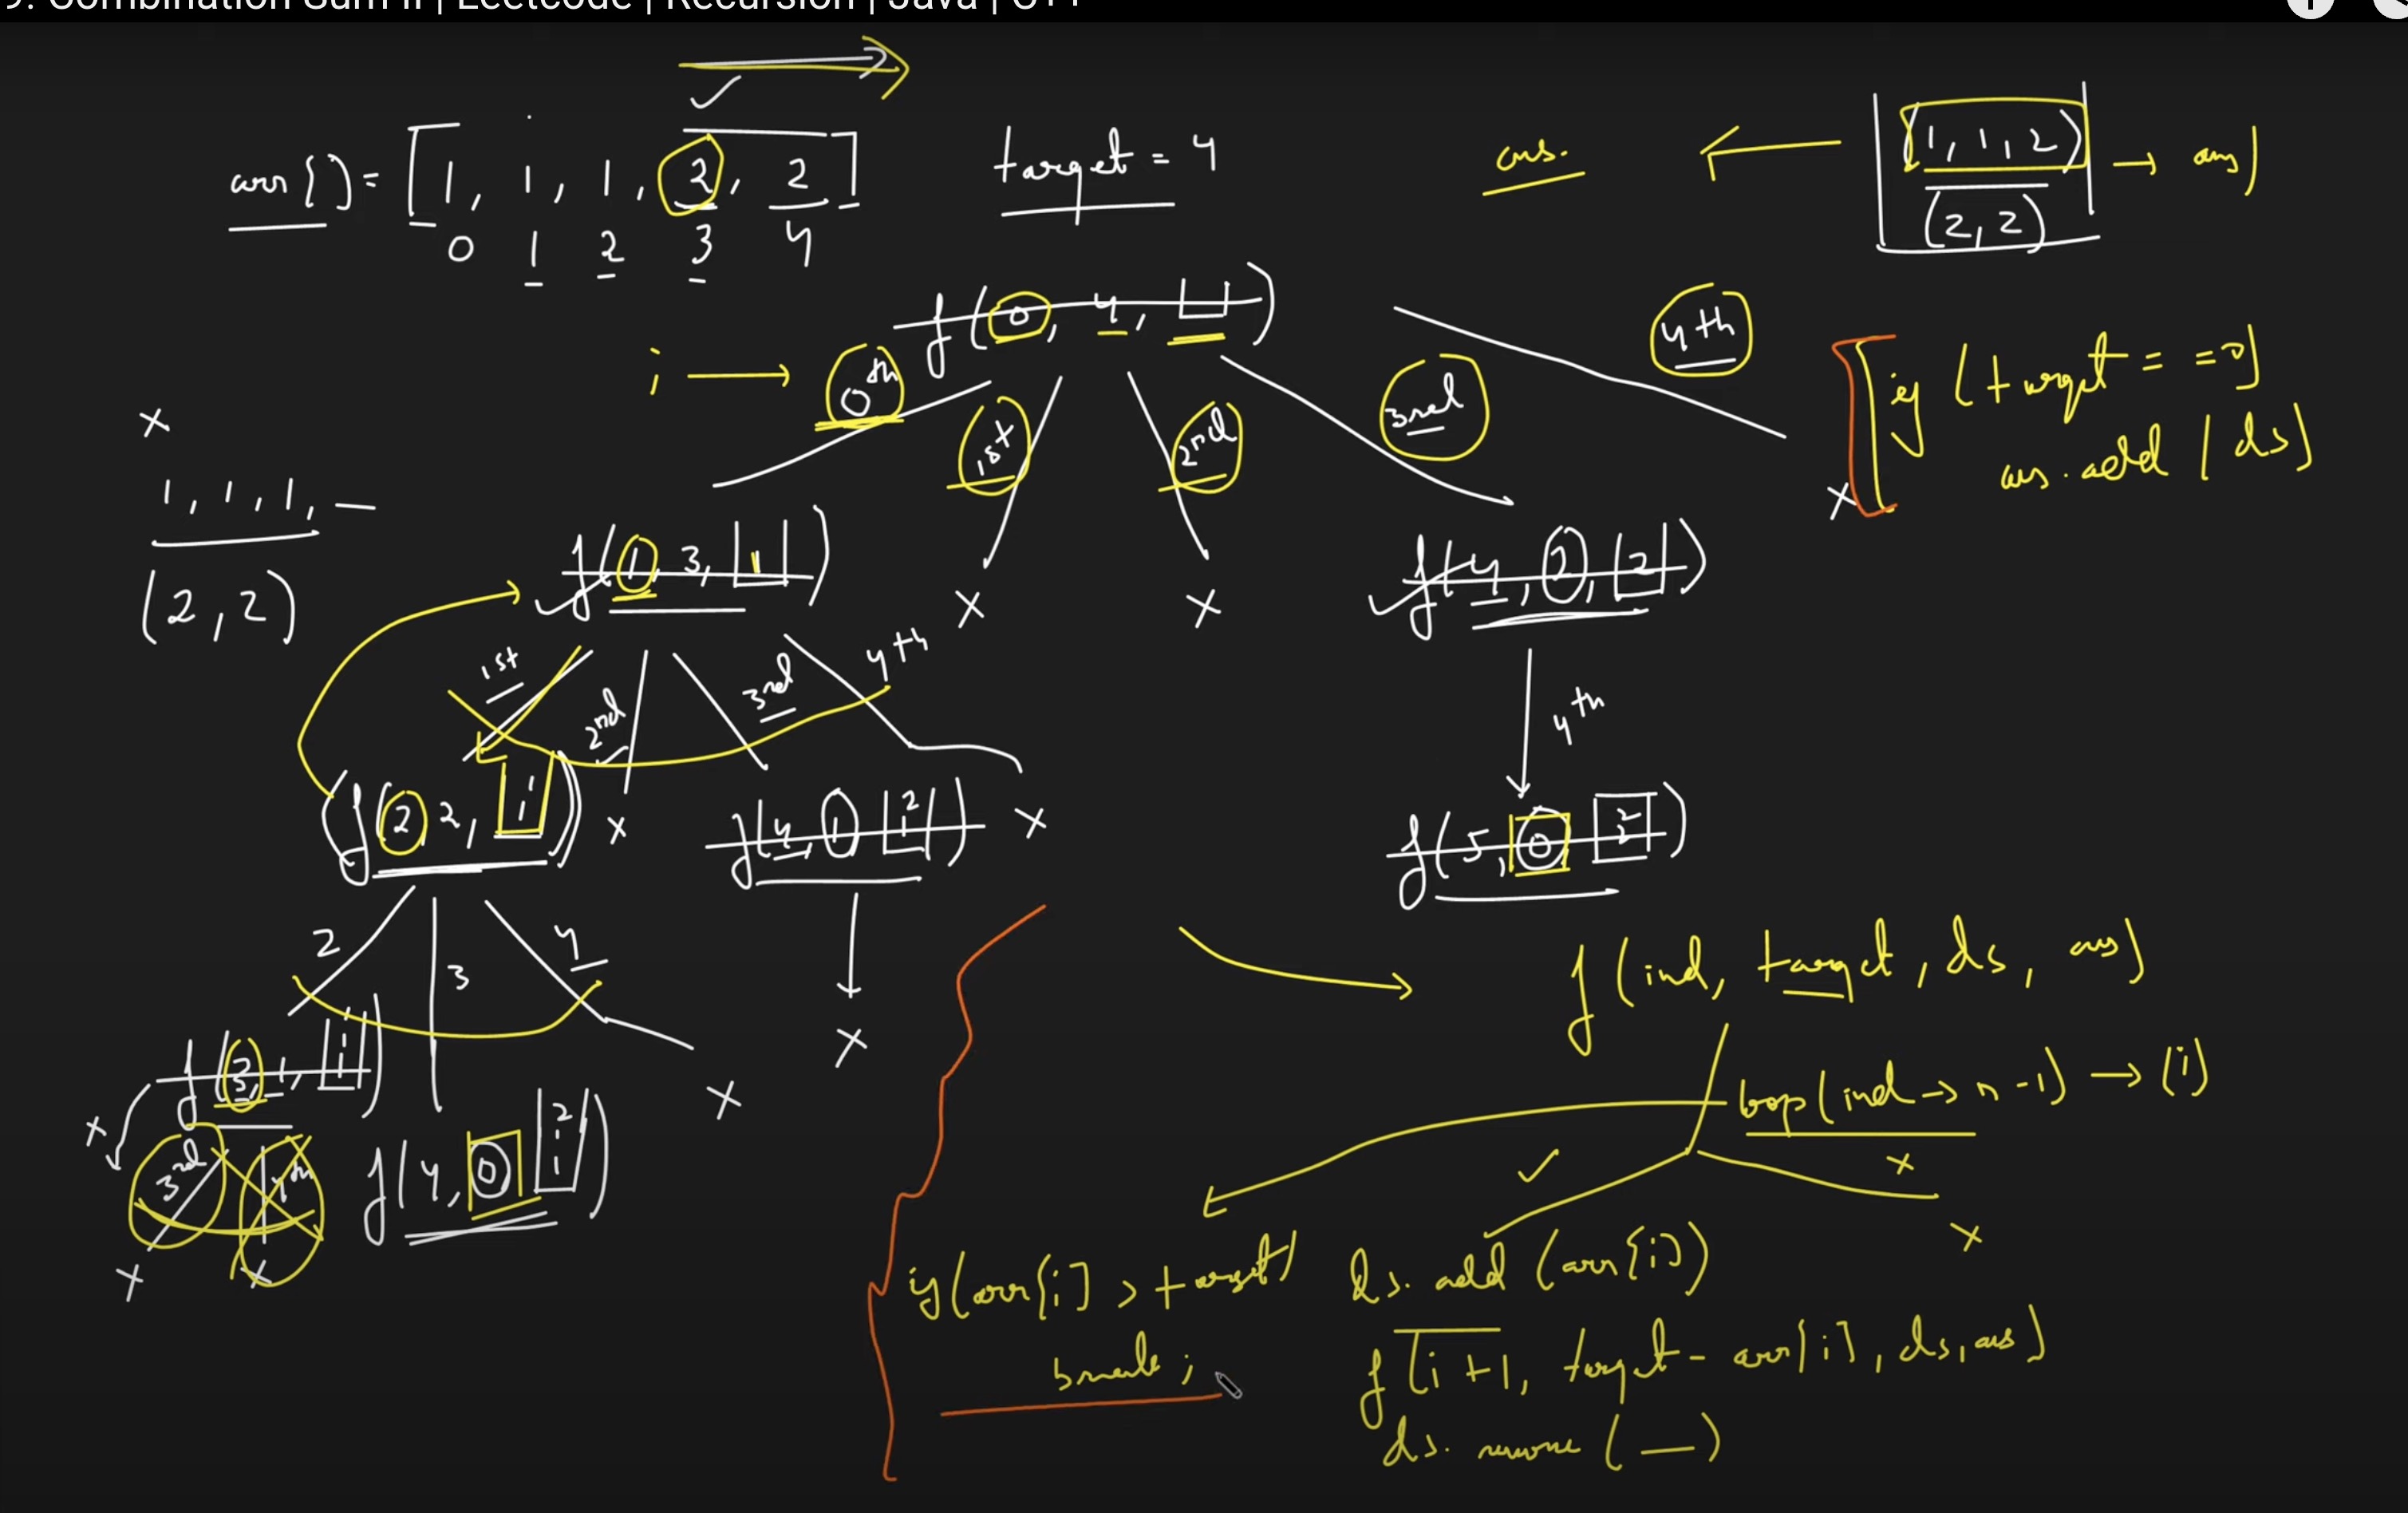 9. Combination Sum II | Leetcode | Recursion | Java | C++
arr[] = [1, 1, 1, 2, 2]
0 1 2 3 4
target = 4
ans.
(1, 1, 2) → ans]
(2, 2)
f(0, 4, )
i → 0th
1st
2nd
3rd
4th
if (target == 0)
ans.add(ds)
x
1, 1, 1, —
(2, 2)
f(1, 3, 1)
x
x
f(4, 2, 2)
x
1st
2nd
3rd
4th
4th
f(2, 2, 1 1)
x
f(4, 1 2 1)
x
f(5, 0 2 2)
2
3
4
x
x
f(3, 1, 1 1 1)
x
3rd
4th
x
x
f(4, 0 2 1 1)
f(ind, target, ds, ans)
loop(ind → n-1) → (i)
x
x
if(arr[i] > target)
break;
ds.add(arr[i])
f(i+1, target - arr[i], ds, ans)
ds.remove(—)